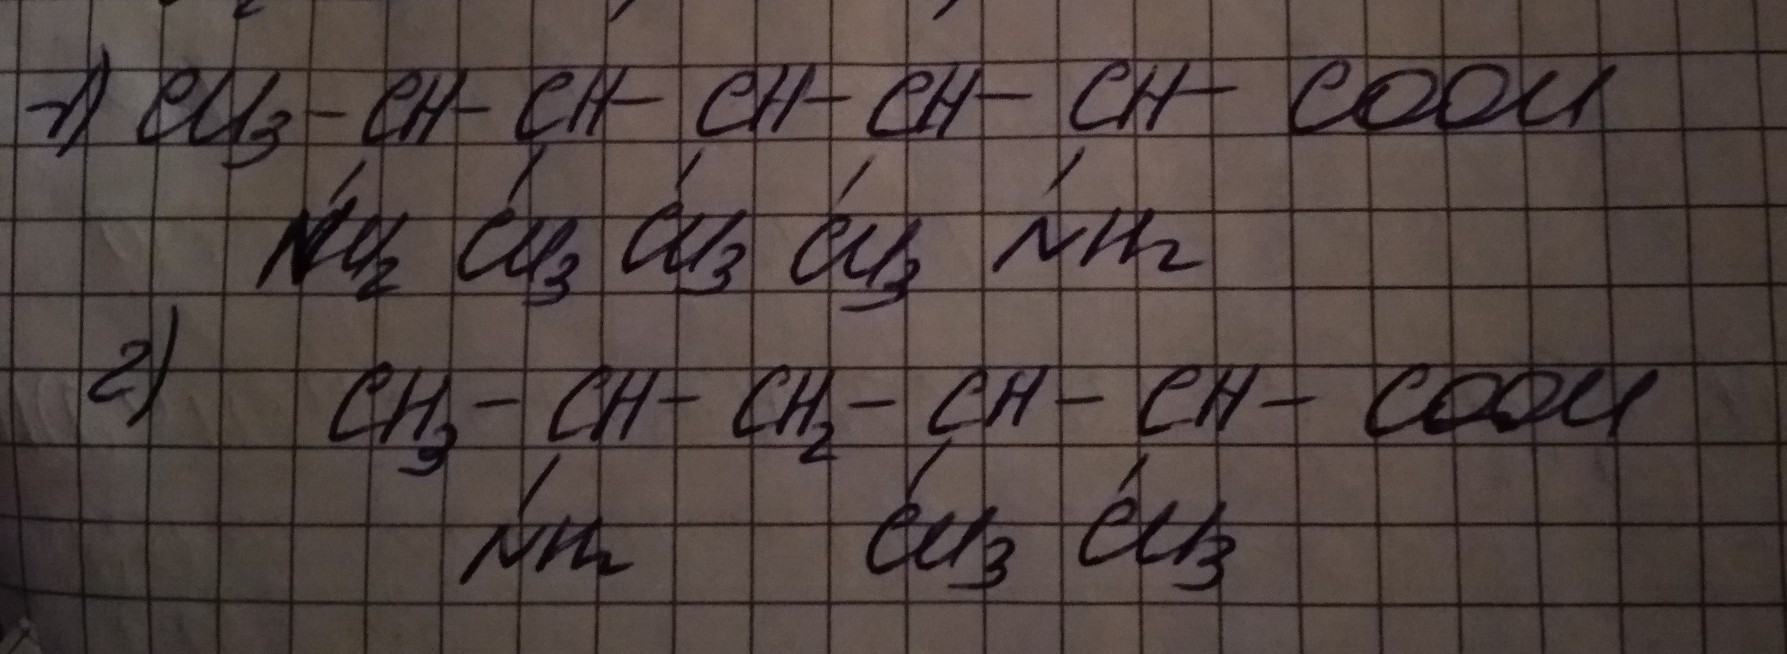 1) CH3 - CH - CH - CH - CH - CH - COOH
NH2 CH3 CH3 CH3 NH2
2) CH3 - CH - CH2 - CH - CH - COOH
NH2 CH3 CH3